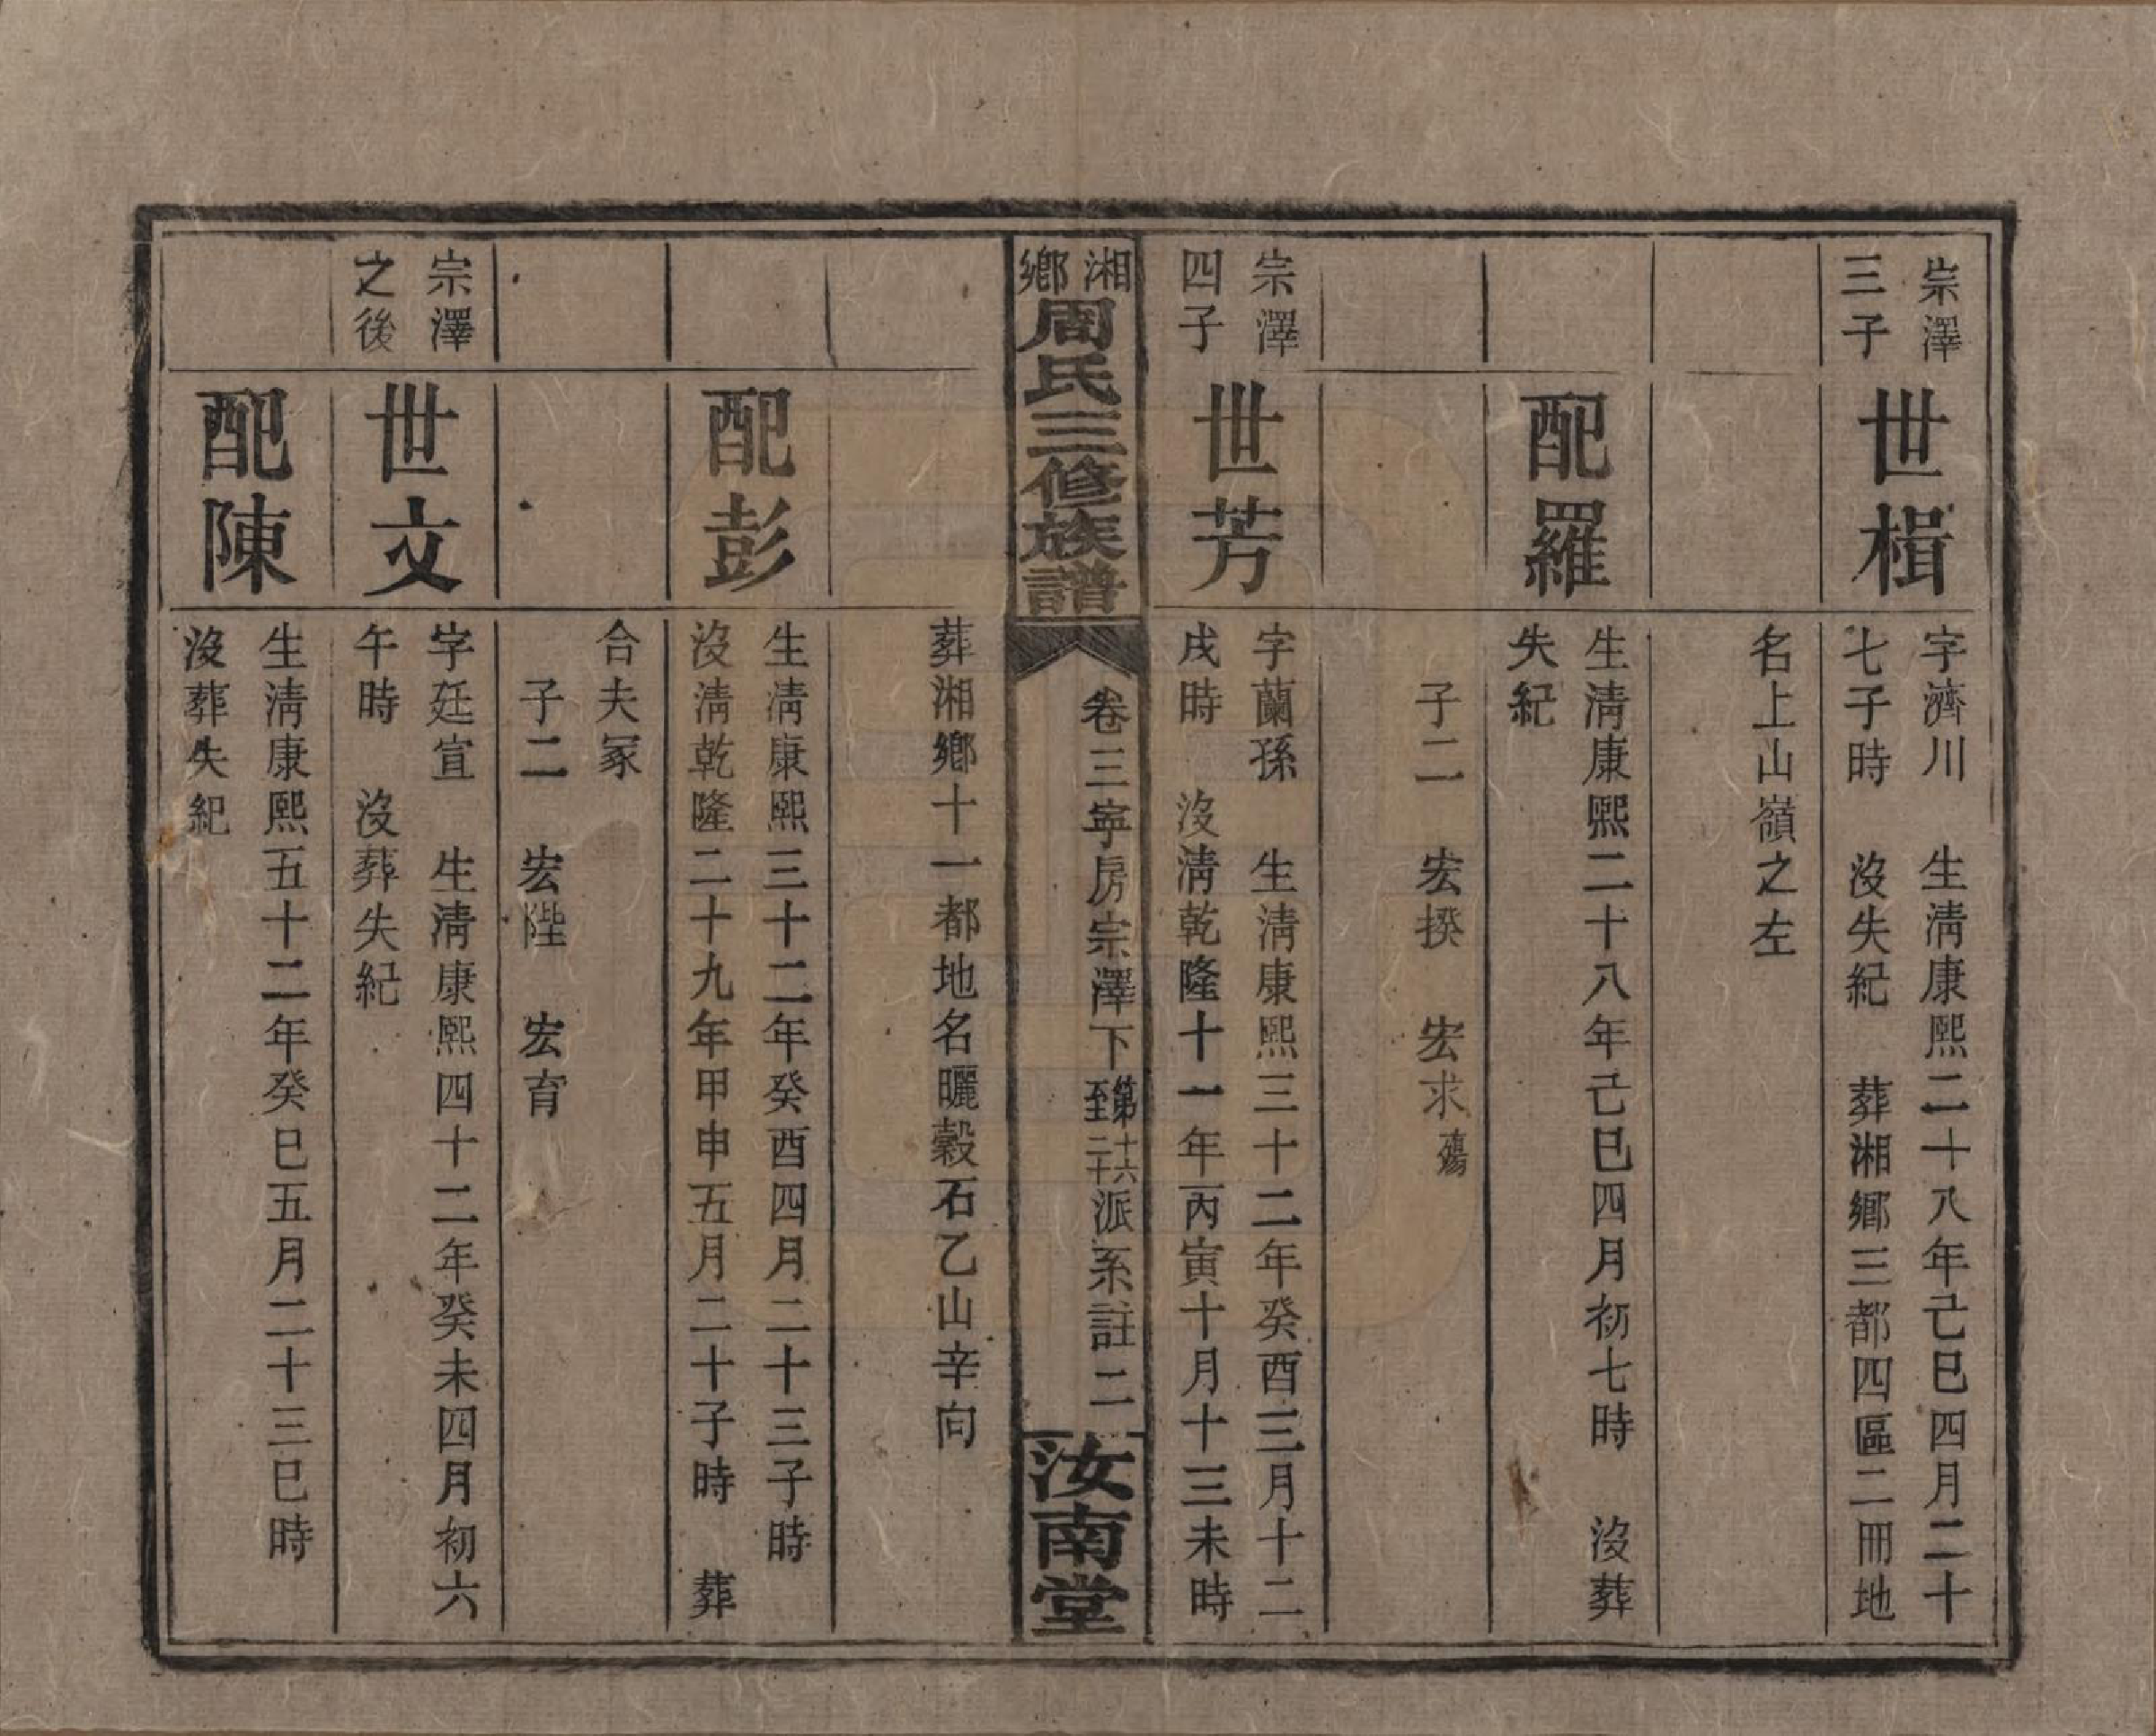 宗澤
三子
世楫
字濟川　生清康熙二十八年己巳四月二十
七子時　沒失紀　葬湘鄉三都四區二冊地
名上山嶺之左
配羅
生清康熙二十八年己巳四月初七時　沒葬
失紀
子二　宏揆　宏求殤
宗澤
四子
世芳
字蘭孫　生清康熙三十二年癸酉三月十二
戌時　沒清乾隆十一年丙寅十月十三未時
湘鄉周氏三修族譜
卷三寧房宗澤下第十六至二十派系註　二
汝南堂
葬湘鄉十一都地名曬穀石乙山辛向
配彭
生清康熙三十二年癸酉四月二十三子時
沒清乾隆二十九年甲申五月二十子時　葬
合夫冢
子二　宏陛　宏育
宗澤
之後
世文
字廷宣　生清康熙四十二年癸未四月初六
午時　沒葬失紀
配陳
生清康熙五十二年癸巳五月二十三巳時
沒葬失紀